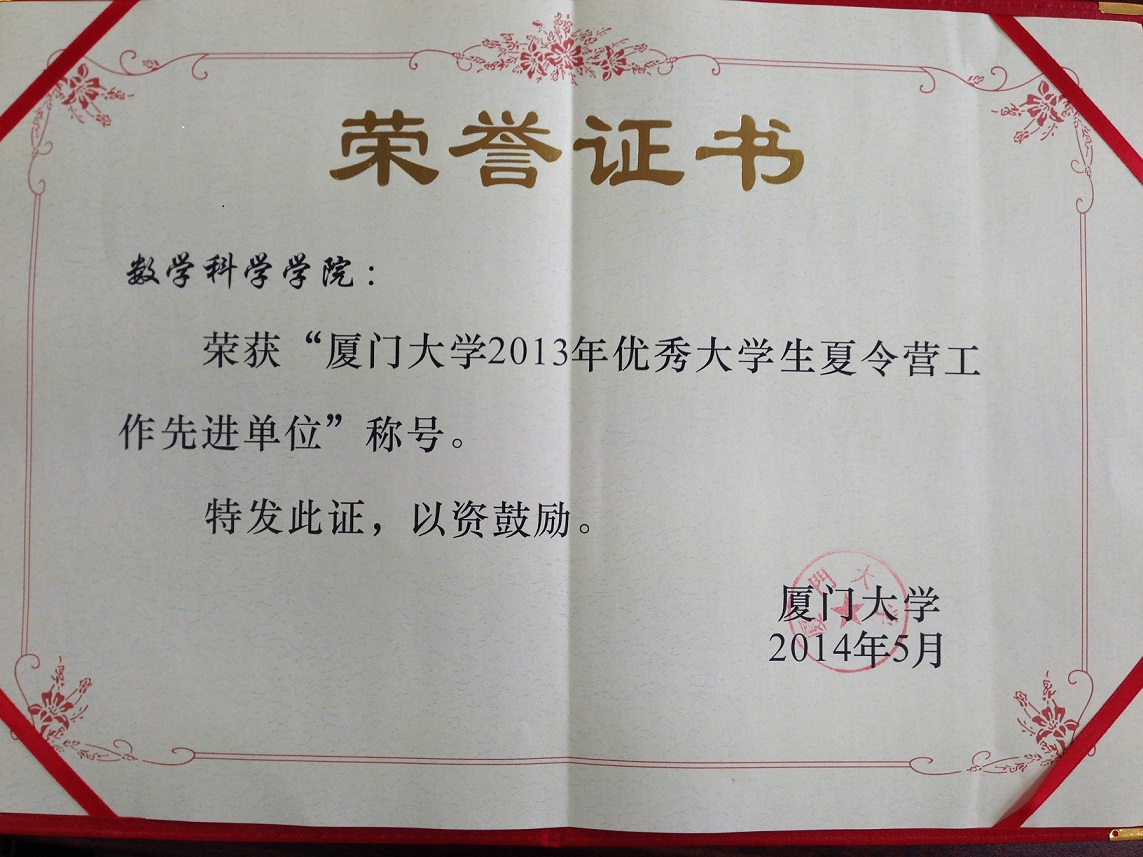 荣誉证书
数学科学学院：
荣获“厦门大学2013年优秀大学生夏令营工
作先进单位”称号。
特发此证，以资鼓励。
厦门大学
2014年5月
厦門大学